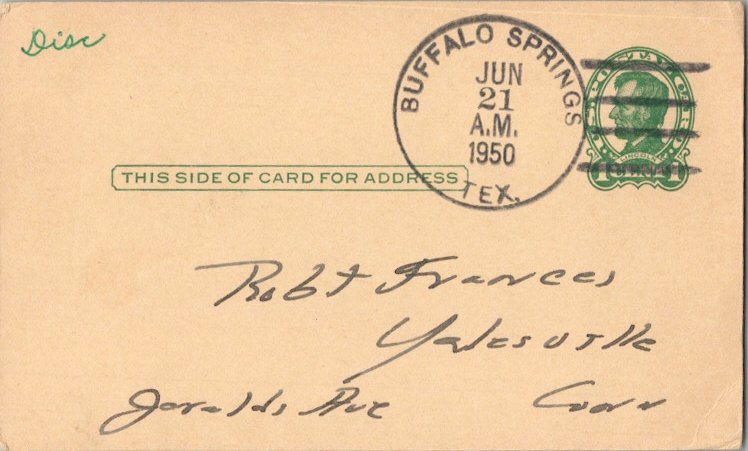 Disc
BUFFALO SPRINGS
JUN
21
A.M.
1950
TEX.
LINCOLN
1 1
THIS SIDE OF CARD FOR ADDRESS
Robt Frances
Yalesville
Jeralds Ave Conn